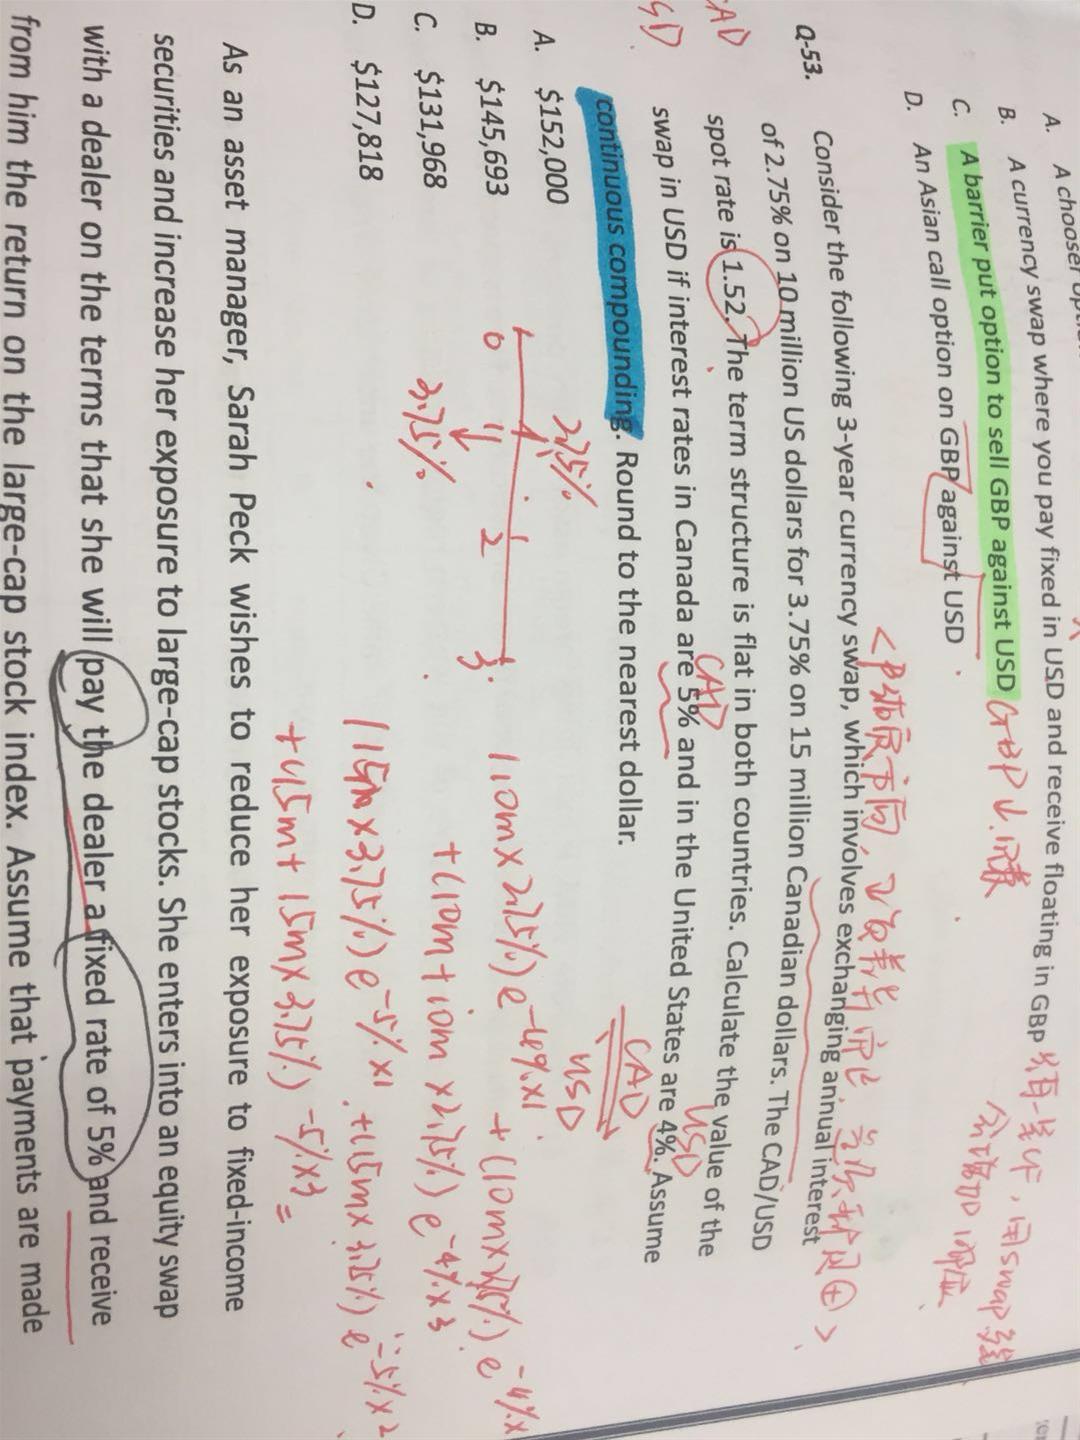 A. A chooser
B. A currency swap where you pay fixed in USD and receive floating in GBP
C. A barrier put option to sell GBP against USD GBP↓.
D. An Asian call option on GBP against USD
Q-53. Consider the following 3-year currency swap, which involves exchanging annual interest
of 2.75% on 10 million US dollars for 3.75% on 15 million Canadian dollars. The CAD/USD
spot rate is 1.52. The term structure is flat in both countries. Calculate the value of the
swap in USD if interest rates in Canada are 5% and in the United States are 4%. Assume
continuous compounding. Round to the nearest dollar.
CAD
USD
CAD
USD
A. $152,000
B. $145,693
C. $131,968
D. $127,818
2.75%
0 1 2 3.
3.75%
110m×2.75%) e^-4%×1 + (10m×2.75%) e^-4%×
+(10m+10m×2.75%) e^-4%×3
115m×3.75%) e^-5%×1 +(15m×3.75%) e^-5%×2
+(15m+15m×3.75%) -5%×3 =
As an asset manager, Sarah Peck wishes to reduce her exposure to fixed-income
securities and increase her exposure to large-cap stocks. She enters into an equity swap
with a dealer on the terms that she will pay the dealer a fixed rate of 5% and receive
from him the return on the large-cap stock index. Assume that payments are made